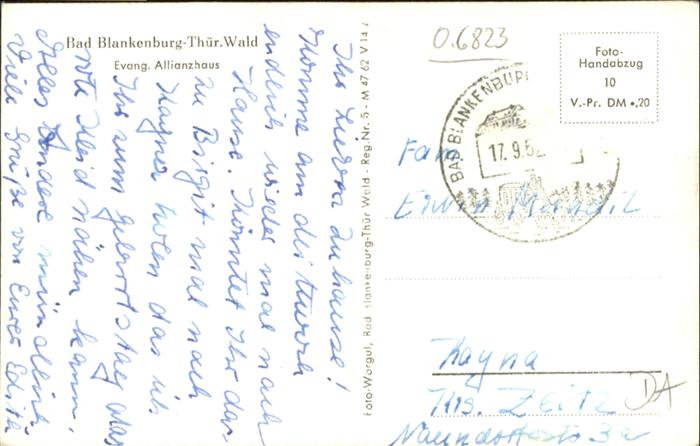 Bad Blankenburg-Thür.Wald
Evang. Allianzhaus
Ihr Lieben Zuhause!
Komme am
endlich wieder mal nach
Hause. Könntet Ihr dan
zu Birgit mal nach
Kayna holen das ich
Ihr zum Geburtstag das
rote Kleid nähen kann.
Alles Andere mündlich
Viele Grüße von Eurer Edith
Foto-Worgul, Bad Blankenburg-Thür Wald - Reg.Nr. 5 - M 47 62 V 14 /
0.6823
Foto-
Handabzug
10
V.-Pr. DM -,20
BAD BLANKENBURG
17. 9. 62
Fam
Erwin
Kayna
Krs. Zeitz
Naundorferstr 3a
DA